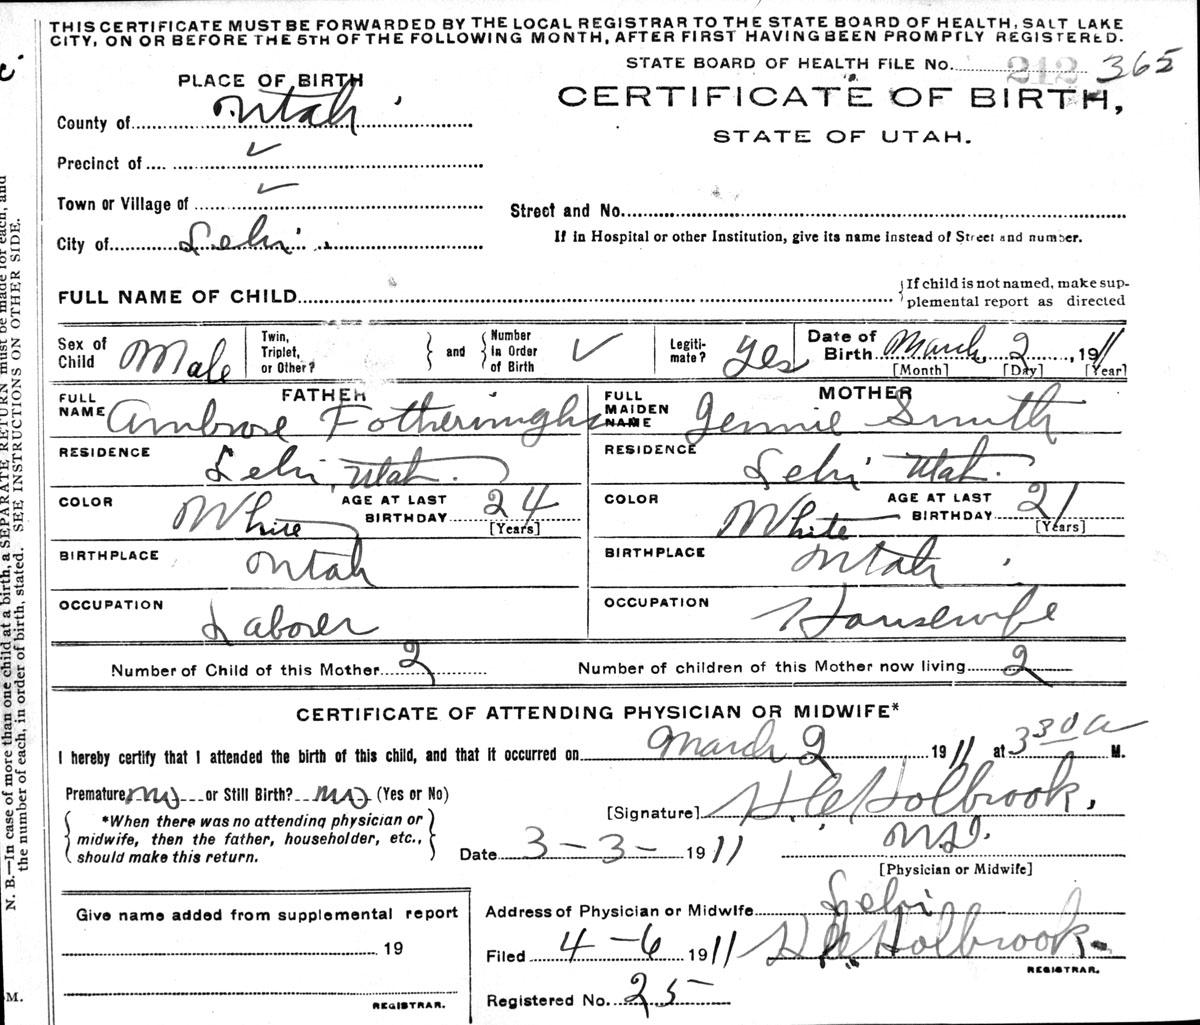 THIS CERTIFICATE MUST BE FORWARDED BY THE LOCAL REGISTRAR TO THE STATE BOARD OF HEALTH, SALT LAKE
CITY, ON OR BEFORE THE 5TH OF THE FOLLOWING MONTH, AFTER FIRST HAVING BEEN PROMPTLY REGISTERED.
STATE BOARD OF HEALTH FILE No. 212 365
PLACE OF BIRTH
CERTIFICATE OF BIRTH,
STATE OF UTAH.
County of Utah
Precinct of ✓
Town or Village of ✓
Street and No.
City of Lehi
If in Hospital or other Institution, give its name instead of Street and number.
FULL NAME OF CHILD
If child is not named, make sup-
plemental report as directed
Sex of Child Male
Twin, Triplet, or Other?
and
Number in Order of Birth ✓
Legiti-mate? Yes
Date of Birth March 2, 1911
[Month] [Day] [Year]
FATHER
MOTHER
FULL NAME Ambrose Fotheringham
FULL MAIDEN NAME Jennie Smith
RESIDENCE Lehi, Utah.
RESIDENCE Lehi Utah.
COLOR White AGE AT LAST BIRTHDAY 24 [Years]
COLOR White AGE AT LAST BIRTHDAY 21 [Years]
BIRTHPLACE Utah
BIRTHPLACE Utah
OCCUPATION Laborer
OCCUPATION Housewife
Number of Child of this Mother 2
Number of children of this Mother now living 2
CERTIFICATE OF ATTENDING PHYSICIAN OR MIDWIFE*
I hereby certify that I attended the birth of this child, and that it occurred on March 2 1911 at 3 30 a M.
Premature no or Still Birth? no (Yes or No)
[Signature] H.E. Holbrook,
*When there was no attending physician or
midwife, then the father, householder, etc.,
should make this return.
Date 3-3- 1911
M.D.
[Physician or Midwife]
Give name added from supplemental report
19
REGISTRAR.
Address of Physician or Midwife Lehi
Filed 4-6 1911 H E Holbrook
REGISTRAR.
Registered No. 25
N. B.—In case of more than one child at a birth, a SEPARATE RETURN must be made for each, and
the number of each, in order of birth, stated. SEE INSTRUCTIONS ON OTHER SIDE.